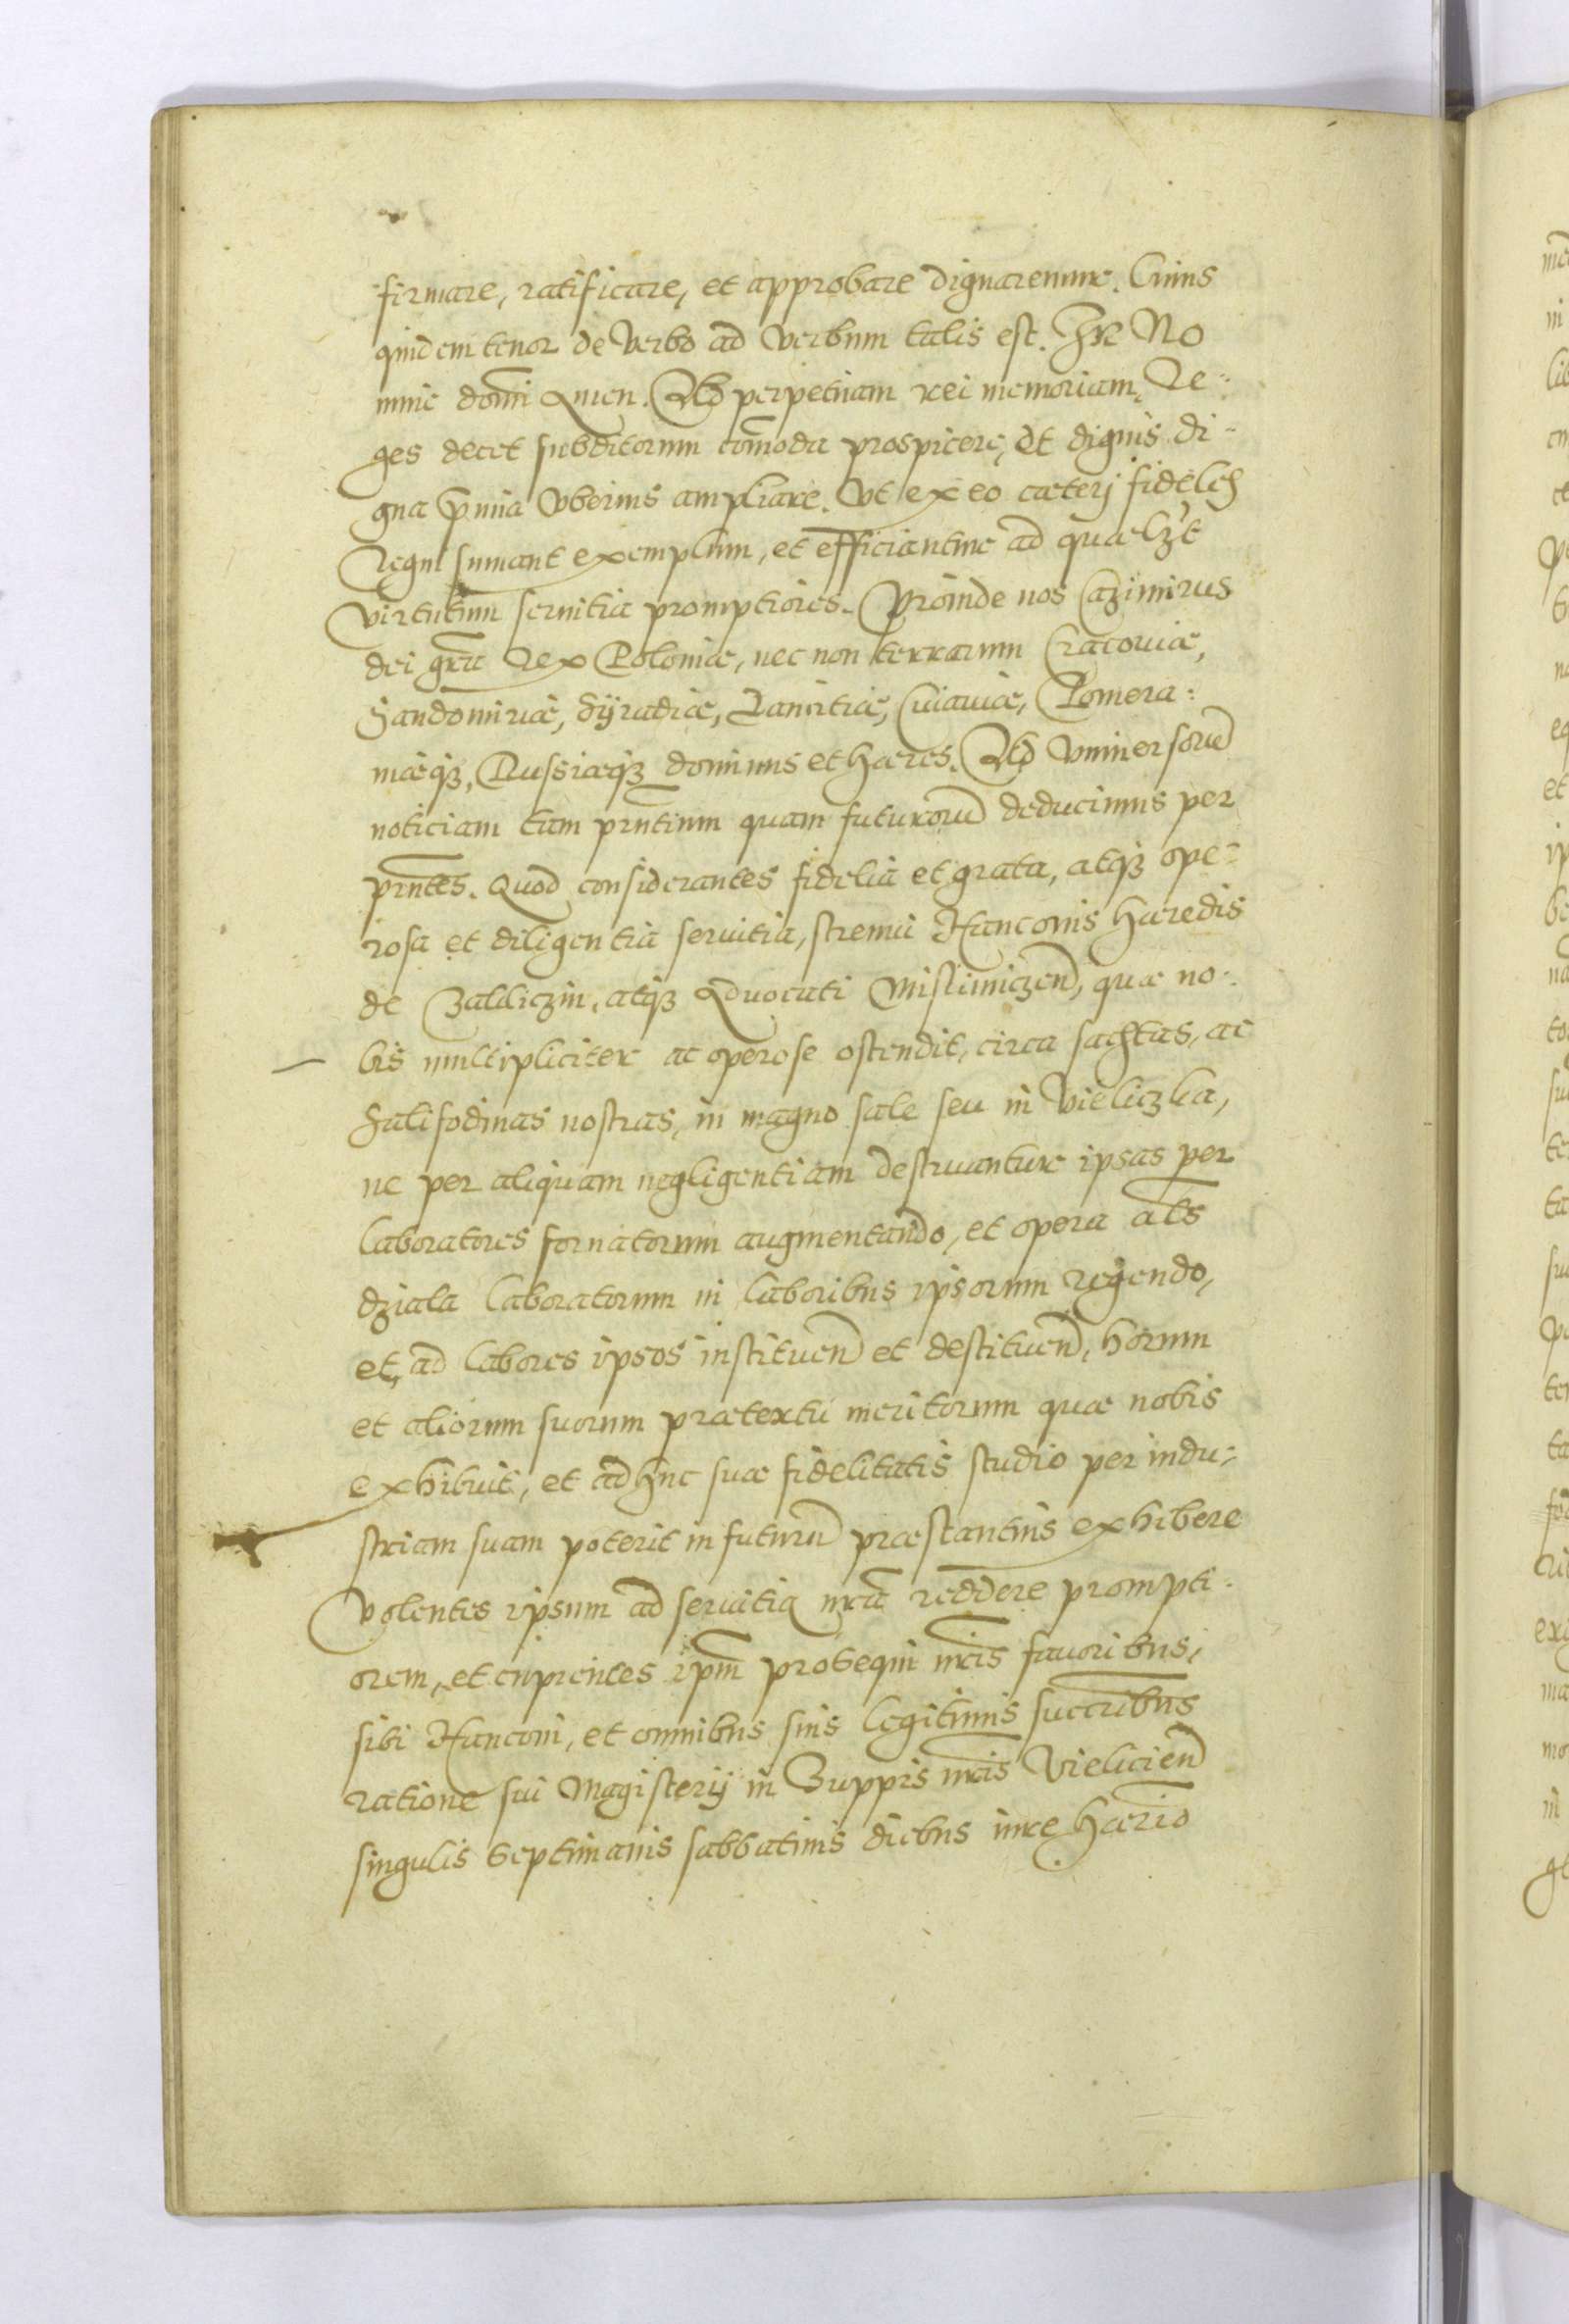 firmare, ratificare, et approbare dignaremur. Cuius
quidem tenor de Verbo ad Verbum talis est. In No
mine domī Amen. Ad perpetuam rei memoriam, Re-
ges decet subditorum com̄oda prospicere, Et dignis di-
gna p̄mia Uberius ampliare. Ut ex eo cæterj fideles
Regni sumant exemplum, et efficiantur ad quælzt
virtutum seruitia promptiores. Proinde nos Cazimirus
dei gr̄a Rex Poloniæ, nec non terrarum Cracouiæ,
Sandomiriæ, Syradiæ, Lancitiæ, Cuiauiæ, Pomera:
niæqꝫ, Russiæqꝫ dominus et hæres. Ad Vniuersoru̅
noticiam tam prn̄tium quam futuroru̅ deducimus per
prn̄tes. Quod considerantes fidelia et grata, atqꝫ ope-
rosa et diligentia seruitia, strenui Hanconis hæredis
de Zakliczin, atqꝫ Aduocati Mislimiczen̄, quæ no-
bis multipliciter ac operose ostendit, circa sachtas, ac
Salifodinas nostras, in magno sale seu in Vieliczka,
ne per aliquam negligentiam destruantur ipsas per
laboratores fornatorum augmentando, et opera al̄s
dziala laboratorum in laboribus ipsorum regendo,
et, ad labores ipsos instituen̄ et destituen̄, horum
et aliorum suorum prætextu meritorum quæ nobis
exhibuit, et adhuc suæ fidelitatis studio per indu-
striam suam poterit in futuru̅ præstantius exhibere
Volentes ipsum ad seruitia nr̄a reddere prompti-
orem, et cupientes ipm̄ prosequi nr̄is fauoribus,
sibi Hanconi, et omnibus suis legitimis succrībus
ratione sui Magisterij in Zuppis nr̄is Vielicien̄
singulis septimanis sabbatinis diebus iure hær̄io